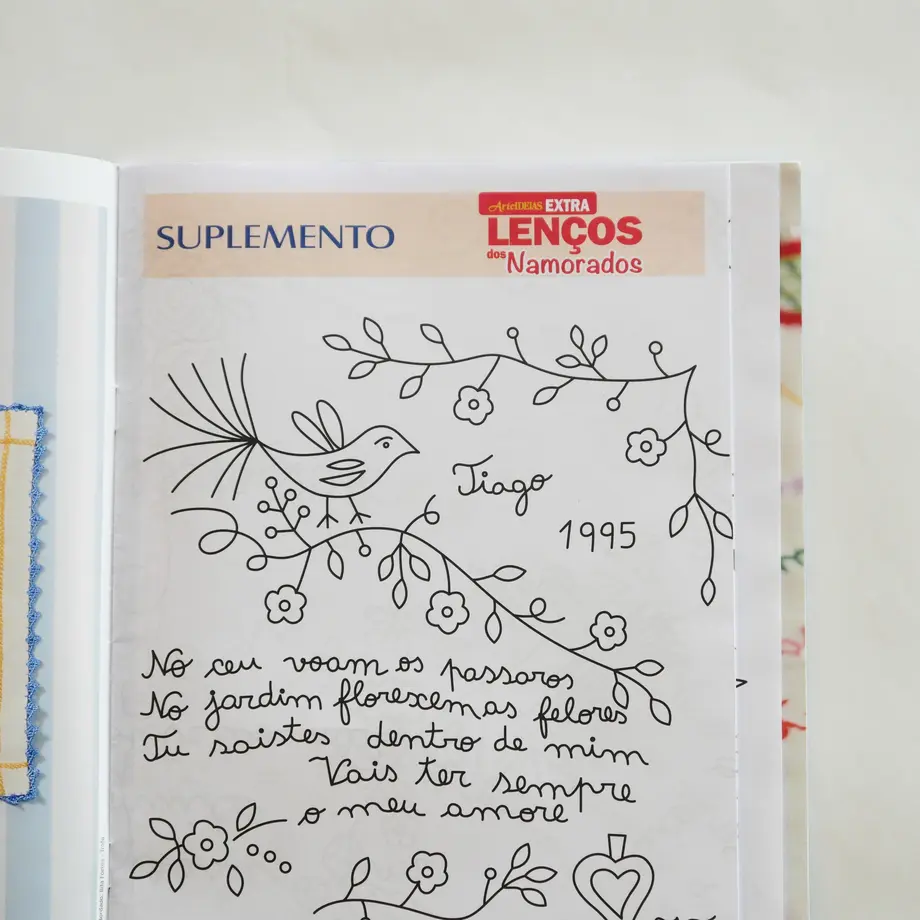 SUPLEMENTO
ArteIDEIAS EXTRA
LENÇOS
dos Namorados
Tiago
1995
No ceu voam os passaros
No jardim florexem as felores
Tu saistes dentro de mim
Vais ter sempre
o meu amore